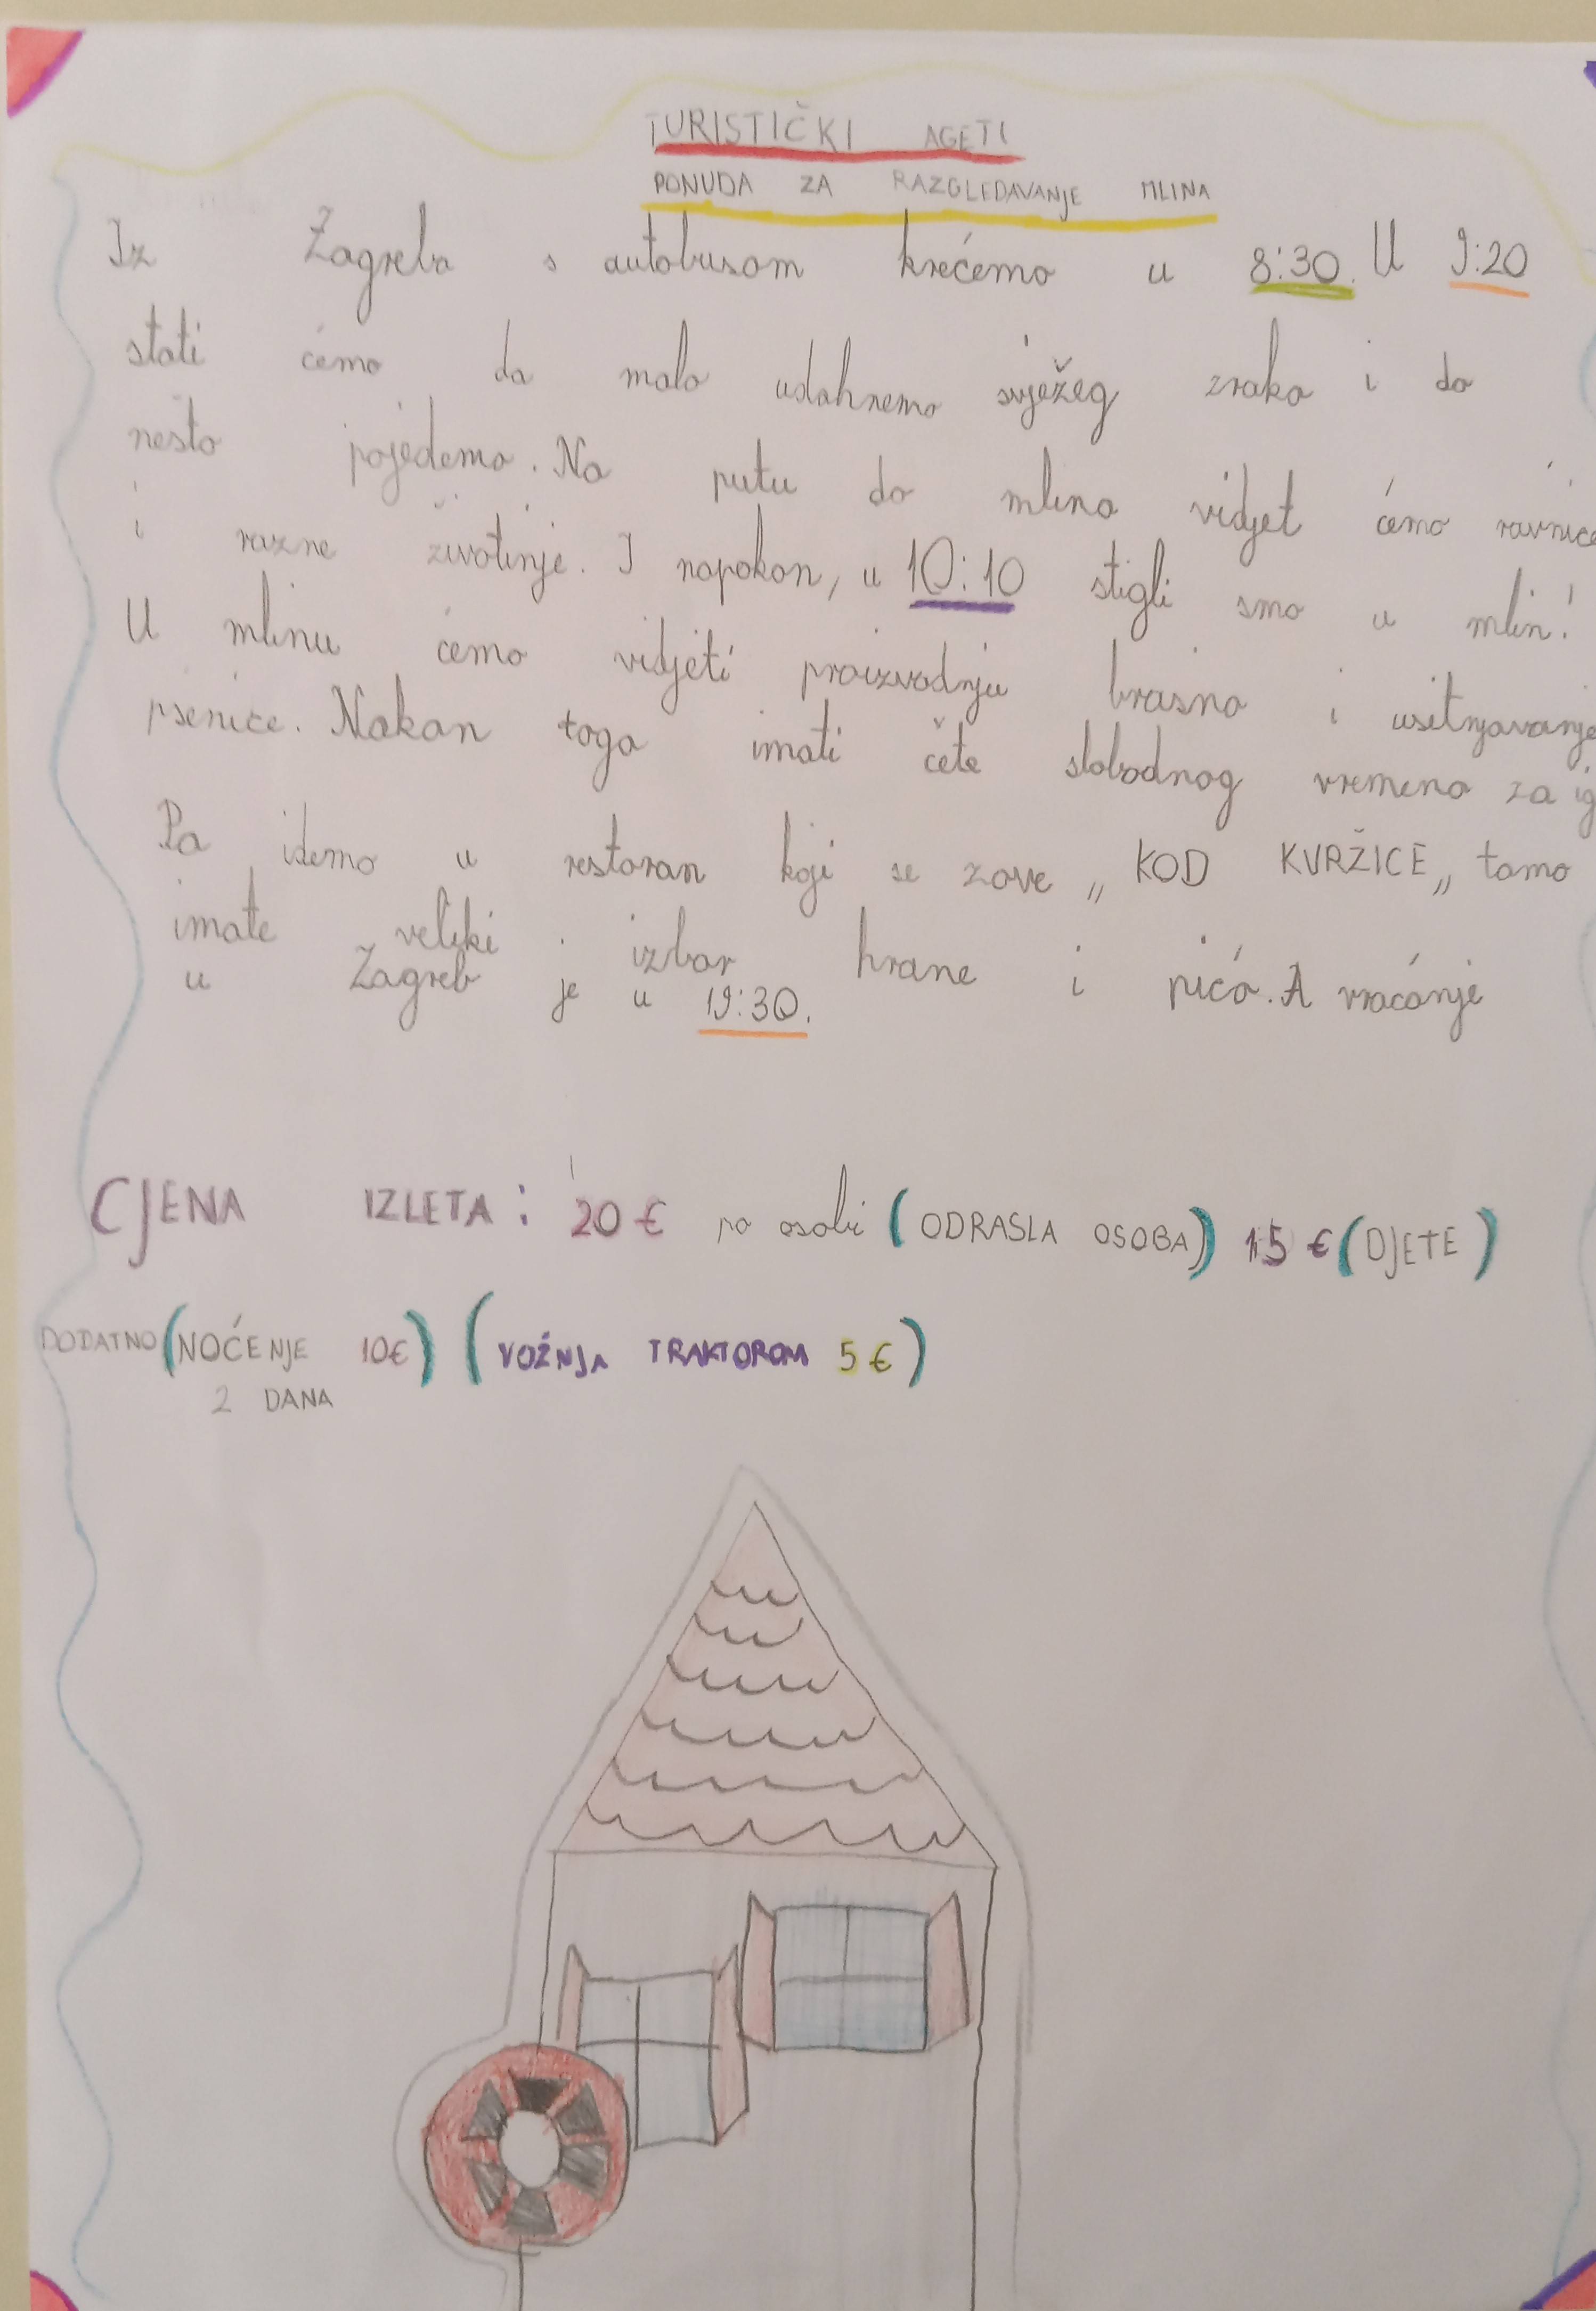 TURISTIČKI AGETI
PONUDA ZA RAZGLEDAVANJE MLINA
Iz Zagreba s autobusom krećemo u 8:30. U 9:20
stati ćemo da malo udahnemo svježeg zraka i da
nesto pojedemo. Na putu do mlina vidjet ćemo ravnice
i razne životinje. I napokon, u 10:10 stigli smo u mlin!
U mlinu ćemo vidjeti proizvodnju brasna i usitnjavanje
psenice. Nakon toga imati čete slobodnog vremena za ig
Pa idemo u restoran koji se zove „KOD KVRŽICE„ tamo
imate veliki izbor hrane i pića. A vraćanje
u Zagreb je u 19:30.
CJENA IZLETA: 20 € po osobi (ODRASLA OSOBA) 15 € (DJETE)
DODATNO (NOĆENJE 10€) (VOŽNJA TRAKTOROM 5 €)
2 DANA